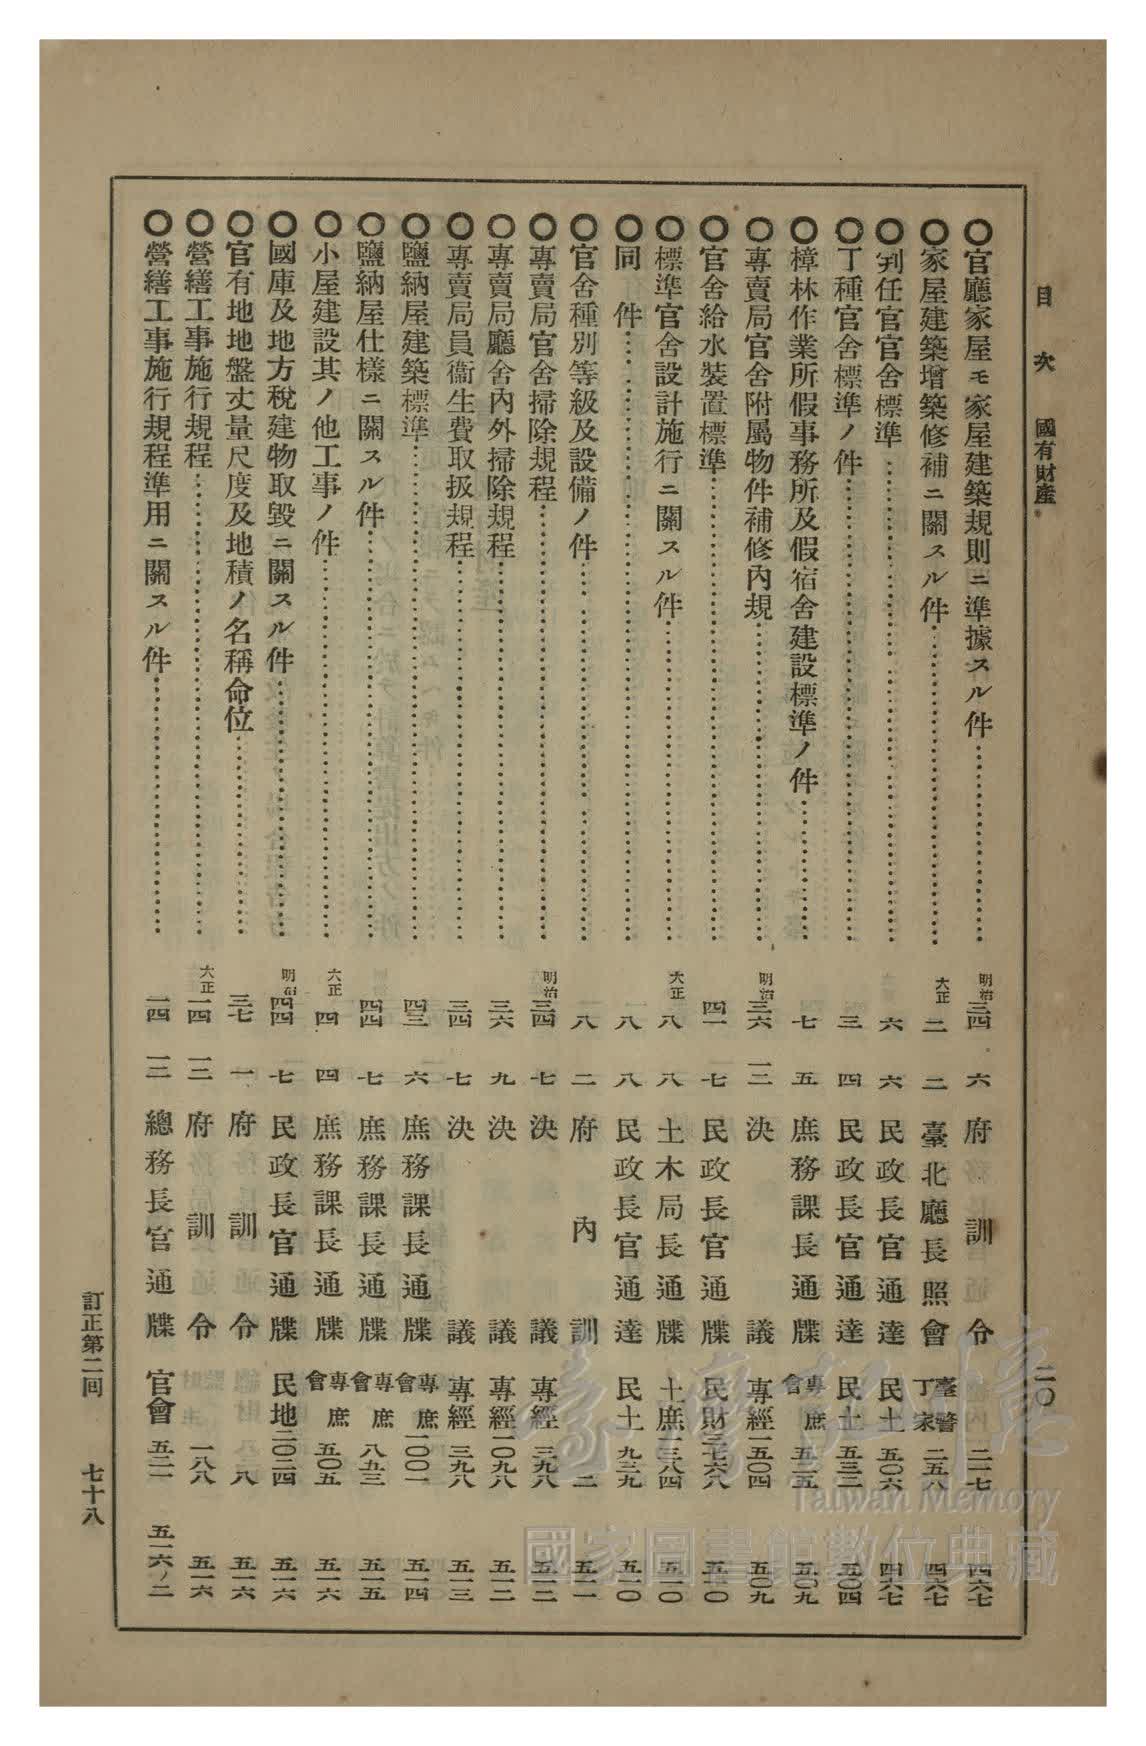 目次 國有財產 二〇
〇官廳家屋モ家屋建築規則ニ準據スル件 明治三四 六 府訓令 二一七 四六七
〇家屋建築增築修補ニ關スル件 大正二 二 臺北廳長照會 臺警丁家二五八 四六七
〇判任官官舍標準 六 六 民政長官通達 民土五〇六 四六七
〇丁種官舍標準ノ件 三 四 民政長官通達 民土五三二 五〇四
〇樟林作業所假事務所及假宿舍建設標準ノ件 七 五 庶務課長通牒 專庶會五三五 五〇九
〇專賣局官舍附屬物件補修內規 明治三六 一二 決議 專經一五〇四 五〇九
〇官舍給水裝置標準 四一 七 民政長官通牒 民財三七六八 五一〇
〇標準官舍設計施行ニ關スル件 大正八 八 土木局長通牒 土庶一三八四 五一〇
〇同件 八 八 民政長官通達 民土九三九 五一〇
〇官舍種別等級及設備ノ件 八 二 府內訓 二 五一一
〇專賣局官舍掃除規程 明治三四 七 決議 專經三九八 五一二
〇專賣局廳舍內外掃除規程 三六 九 決議 專經一〇九八 五一二
〇專賣局員衞生費取扱規程 三四 七 決議 專經三九八 五一三
〇鹽納屋建築標準 四三 六 庶務課長通牒 專庶會一〇〇一 五一四
〇鹽納屋仕樣ニ關スル件 四四 七 庶務課長通牒 專庶會八五三 五一五
〇小屋建設其ノ他工事ノ件 大正四 四 庶務課長通牒 專庶會五〇五 五一六
〇國庫及地方稅建物取毀ニ關スル件 明治四四 七 民政長官通牒 民地二〇二四 五一六
〇官有地地盤丈量尺度及地積ノ名稱命位 三七 一 府訓令 八 五一六
〇營繕工事施行規程 大正一四 一二 府訓令 一八八 五一六
〇營繕工事施行規程準用ニ關スル件 一四 一二 總務長官通牒 官會五二一 五一六ノ二
訂正第二回 七十八
臺灣記憶
Taiwan Memory
國家圖書館數位典藏